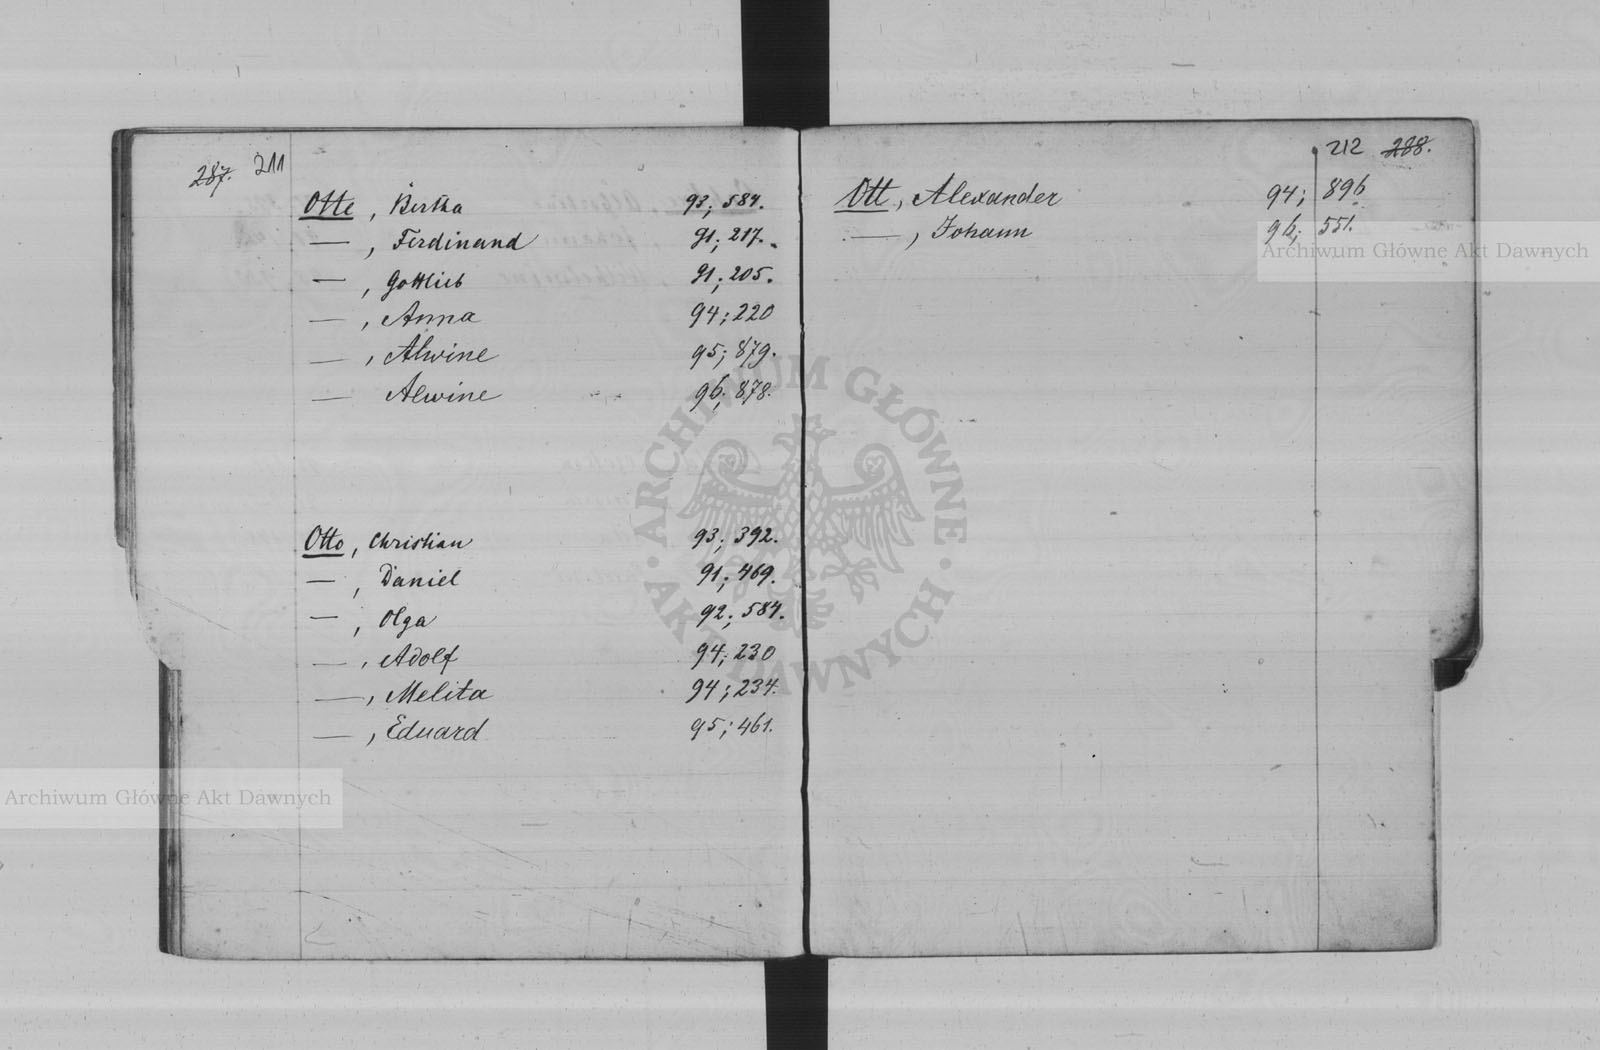 287. 211
Otte, Bertha 93; 584.
—, Ferdinand 91; 217.
—, Gottlieb 91; 205.
—, Anna 94; 220
—, Alwine 95; 879.
— Alwine 96; 878.
Otto, Christian 93; 392.
—, Daniel 91; 469.
—, Olga 92; 584.
—, Adolf 94; 230
—, Melita 94; 234.
—, Eduard 95; 461.
212 288.
Ott, Alexander 94; 896
—, Johann 96; 551.
Archiwum Główne Akt Dawnych
ARCHIWUM GŁÓWNE
· AKT DAWNYCH ·
Archiwum Główne Akt Dawnych